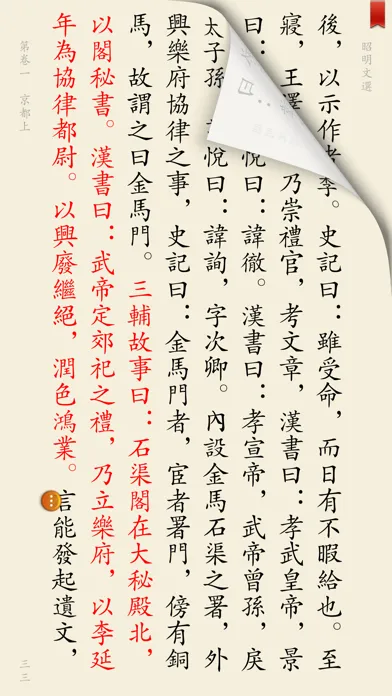 昭明文選
後，以示作者李。史記曰：雖受命，而日有不暇給也。至
寢，王澤乃崇禮官，考文章，漢書曰：孝武皇帝，景
曰：悅曰：諱徹。漢書曰：孝宣帝，武帝曾孫，戾
太子孫悅曰：諱詢，字次卿。內設金馬石渠之署，外
興樂府協律之事，史記曰：金馬門者，宦者署門，傍有銅
馬，故謂之曰金馬門。 三輔故事曰：石渠閣在大秘殿北，
以閣秘書。漢書曰：武帝定郊祀之禮，乃立樂府，以李延
年為協律都尉。以興廢繼絕，潤色鴻業。 言能發起遺文，
第卷一 京都上
三三